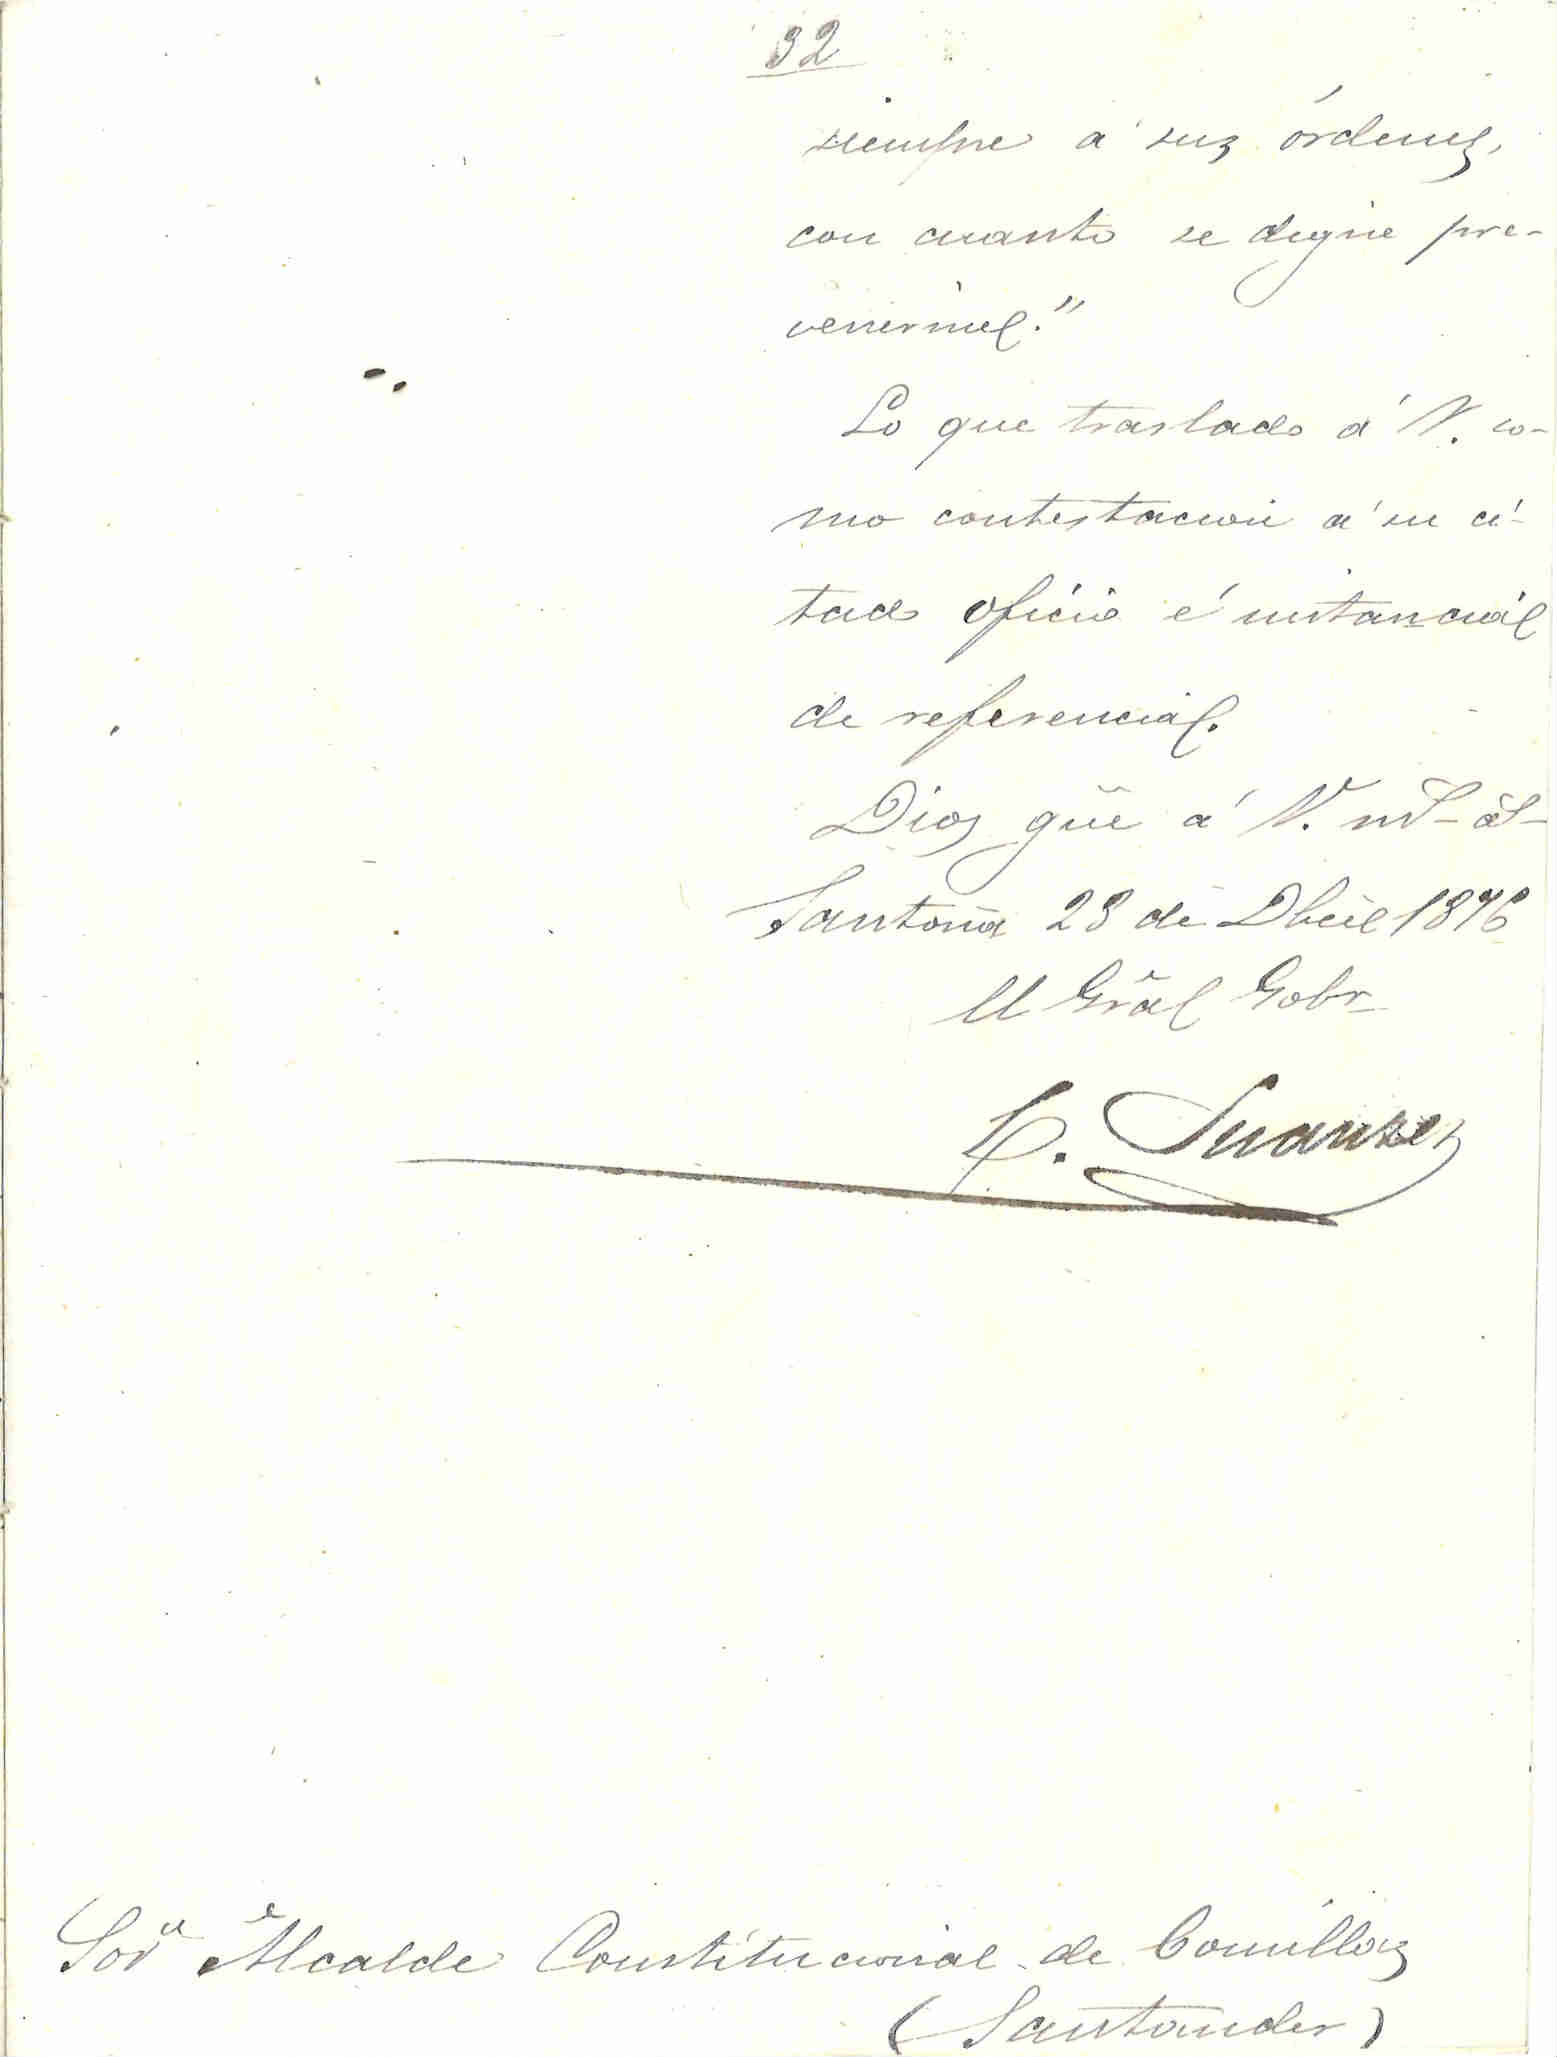 32
siempre á sus órdenes,
con cuanto se digne pre-
venirme."
Lo que traslado á V. co-
mo contestacion á su ci-
tado oficio é instancia
de referencia.
Dios gũe á V. mS- aS-
Santoña 28 de Dbre 1876
El Grãl Gobr
C. Suanzes
Sor Alcalde Constitucional de Comillas
(Santander)